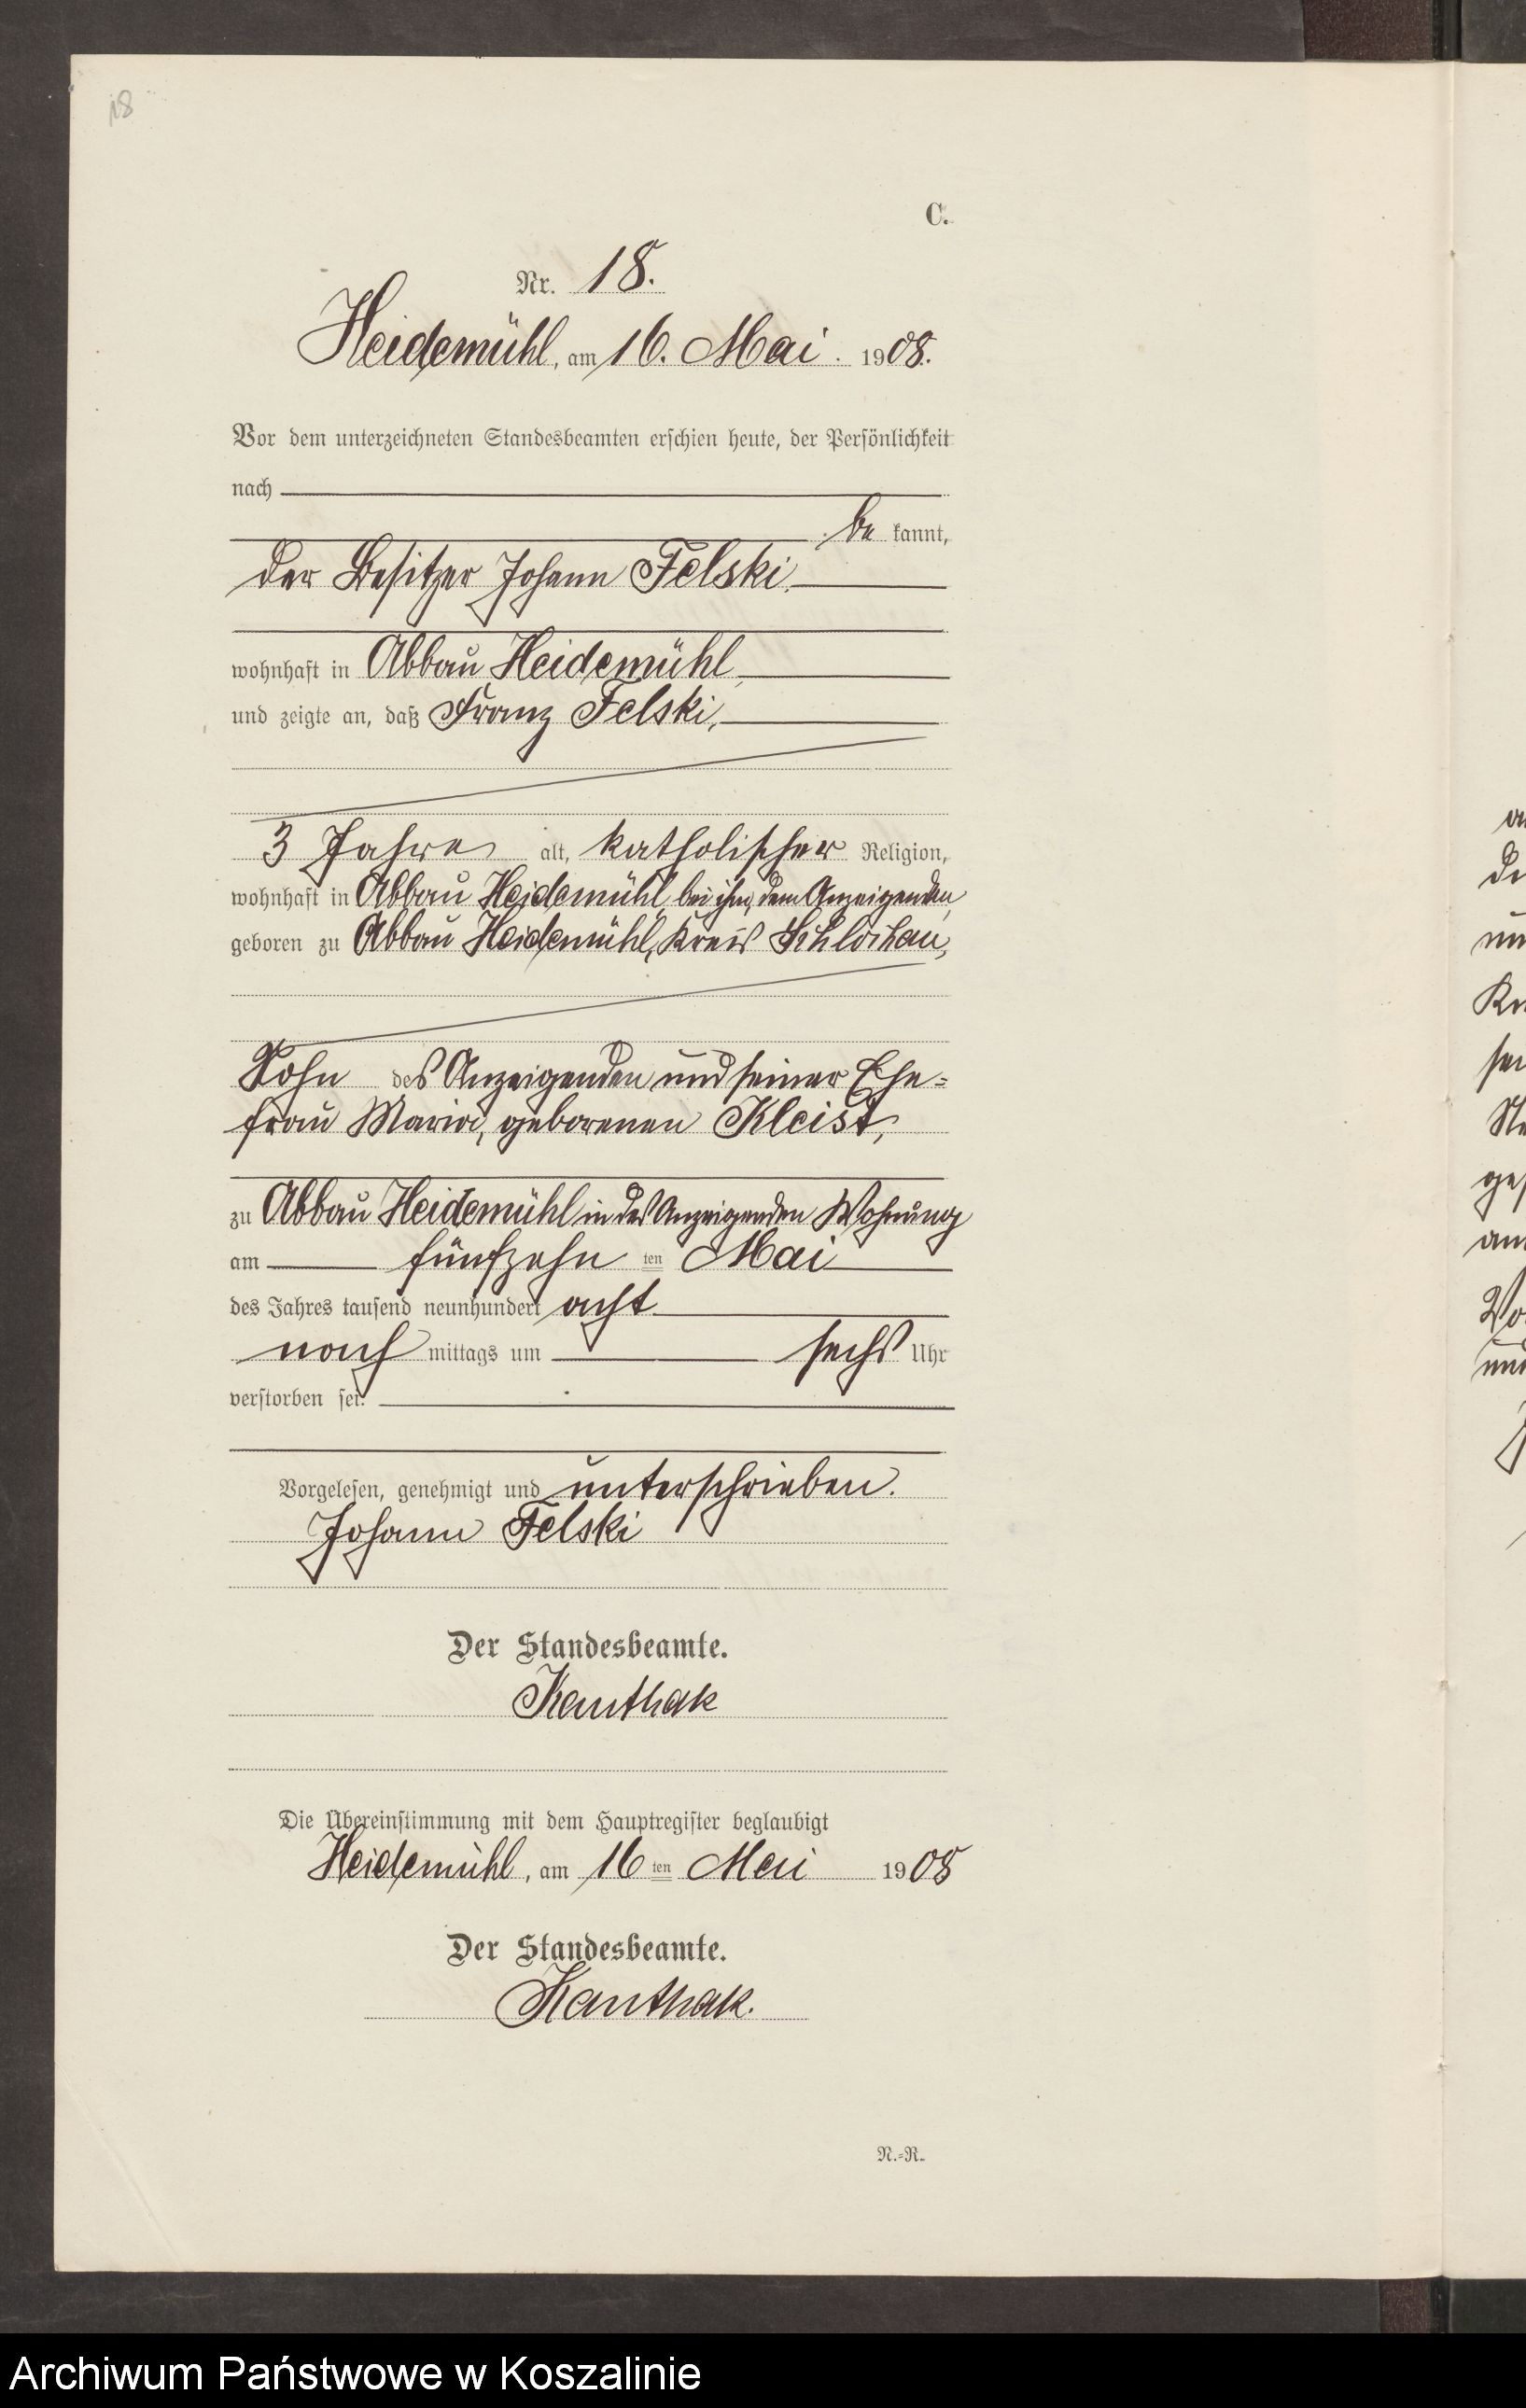 18
C.
Nr. 18.
Heidemühl, am 16. Mai. 1908.
Vor dem unterzeichneten Standesbeamten erschien heute, der Persönlichkeit
nach
be kannt,
der Besitzer Johann Felski,
wohnhaft in Abbau Heidemühl,
und zeigte an, daß Franz Felski,
3 Jahre alt, katholischer Religion,
wohnhaft in Abbau Heidemühl bei ihm, dem Anzeigenden,
geboren zu Abbau Heidemühl, Kreis Schlochau,
Sohn des Anzeigenden und seiner Ehe=
frau Maria, geborenen Kleist,
zu Abbau Heidemühl in des Anzeigenden Wohnung
am fünfzehn ten Mai
des Jahres tausend neunhundert acht
nach mittags um sechs Uhr
verstorben sei.
Vorgelesen, genehmigt und unterschrieben.
Johann Felski
Der Standesbeamte.
Kanthak
Die Übereinstimmung mit dem Hauptregister beglaubigt
Heidemühl, am 16 ten Mai 1908
Der Standesbeamte.
Kanthak.
N.=R.
Archiwum Państwowe w Koszalinie